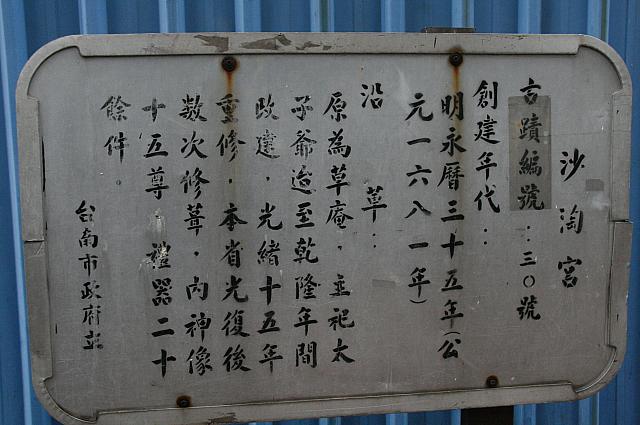 沙淘宮
古蹟編號：三〇號
創建年代：
明永曆三十五年（公
元一六八一年）
沿革：
原為草庵，主祀太
子爺迨至乾隆年間
改建，光緒十五年
重修，本省光復後
数次修葺，內神像
十五尊，禮器二十
餘件。
台南市政府立